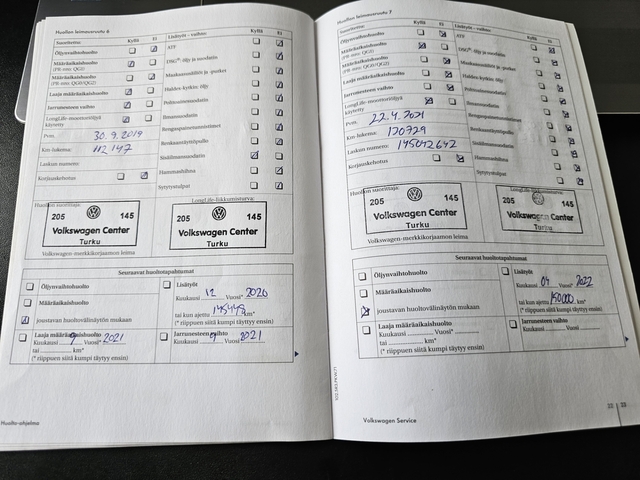 Huollon leimavaruutu 6
Suoritettu: Kyllä Ei
Öljynvaihtohuolto
Määräaikaishuolto
(PR-nro: QG1)
Määräaikaishuolto
(PR-nro: QG0/QG2)
Laaja määräaikaishuolto
Jarrunesteen vaihto
LongLife-moottoriöljyä
käytetty
Pvm. 30.9.2019
Km-lukema: 112 147
Laskun numero:
Korjauskehotus
Lisätyöt - vaihto Kyllä Ei
ATF
DSG®: öljy ja suodatin
Haldex-kytkin: öljy
Polttoainesuodatin
Ilmansuodatin
Rengaspaineentunnistimet
Renkaantäyttöpullo
Sisäilmansuodatin
Hammashihna
Sytytystulpat
Huollon suorittaja:
205 145
Volkswagen Center
Turku
Volkswagen-merkkikorjaamon leima
LongLife-liikkumisturva:
205 145
Volkswagen Center
Turku
Seuraavat huoltotapahtumat
Öljynvaihtohuolto
Määräaikaishuolto
joustavan huoltovälinäytön mukaan
Lisätyöt
Kuukausi 12 Vuosi* 2020
tai kun ajettu km*
(* riippuen siitä kumpi täyttyy ensin)
Laaja määräaikaishuolto
Kuukausi 9 Vuosi* 2021
tai km*
(* riippuen siitä kumpi täyttyy ensin)
Jarrunesteen vaihto
Kuukausi 9 Vuosi 2021
Huolto-ohjelma
Huollon leimavaruutu 7
Suoritettu: Kyllä Ei
Öljynvaihtohuolto
Määräaikaishuolto
(PR-nro: QG1)
Määräaikaishuolto
(PR-nro: QG0/QG2)
Laaja määräaikaishuolto
Jarrunesteen vaihto
LongLife-moottoriöljyä
käytetty
Pvm. 22.4.2021
Km-lukema: 120729
Laskun numero: 145042642
Korjauskehotus
Lisätyöt - vaihto Kyllä Ei
ATF
DSG®: öljy ja suodatin
Haldex-kytkin: öljy
Polttoainesuodatin
Ilmansuodatin
Rengaspaineentunnistimet
Renkaantäyttöpullo
Sisäilmansuodatin
Hammashihna
Sytytystulpat
Huollon suorittaja:
205 145
Volkswagen Center
Turku
Volkswagen-merkkikorjaamon leima
LongLife-liikkumisturva:
205 145
Volkswagen Center
Turku
Seuraavat huoltotapahtumat
Öljynvaihtohuolto
Määräaikaishuolto
joustavan huoltovälinäytön mukaan
Lisätyöt
Kuukausi 04 Vuosi 2022
tai kun ajettu 150000 km*
(* riippuen siitä kumpi täyttyy ensin)
Laaja määräaikaishuolto
Kuukausi Vuosi*
tai km*
(* riippuen siitä kumpi täyttyy ensin)
Jarrunesteen vaihto
Kuukausi Vuosi
Volkswagen Service